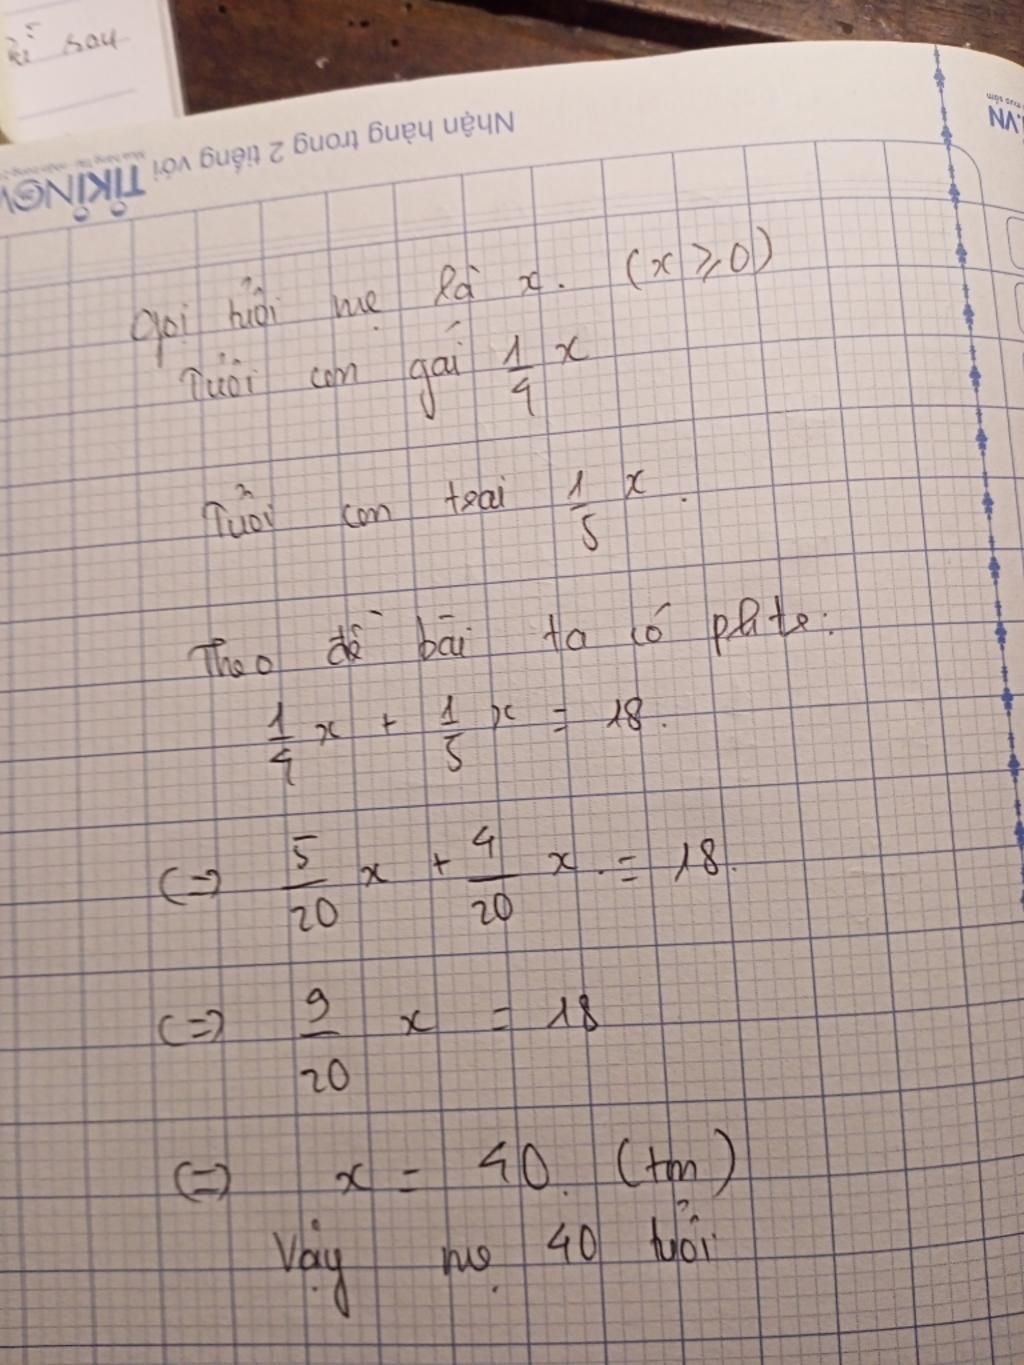 ri sau
Nhận hàng trong 2 tiếng với TIKINOW
.VN
Gọi tuổi mẹ là x. (x ⩾ 0)
Tuổi con gái 1/4 x
Tuổi con trai 1/5 x.
Theo đề bài ta có phtr:
1/4 x + 1/5 x = 18.
(=) 5/20 x + 4/20 x = 18.
(=) 9/20 x = 18
(=) x = 40. (tm)
Vậy mẹ 40 tuổi